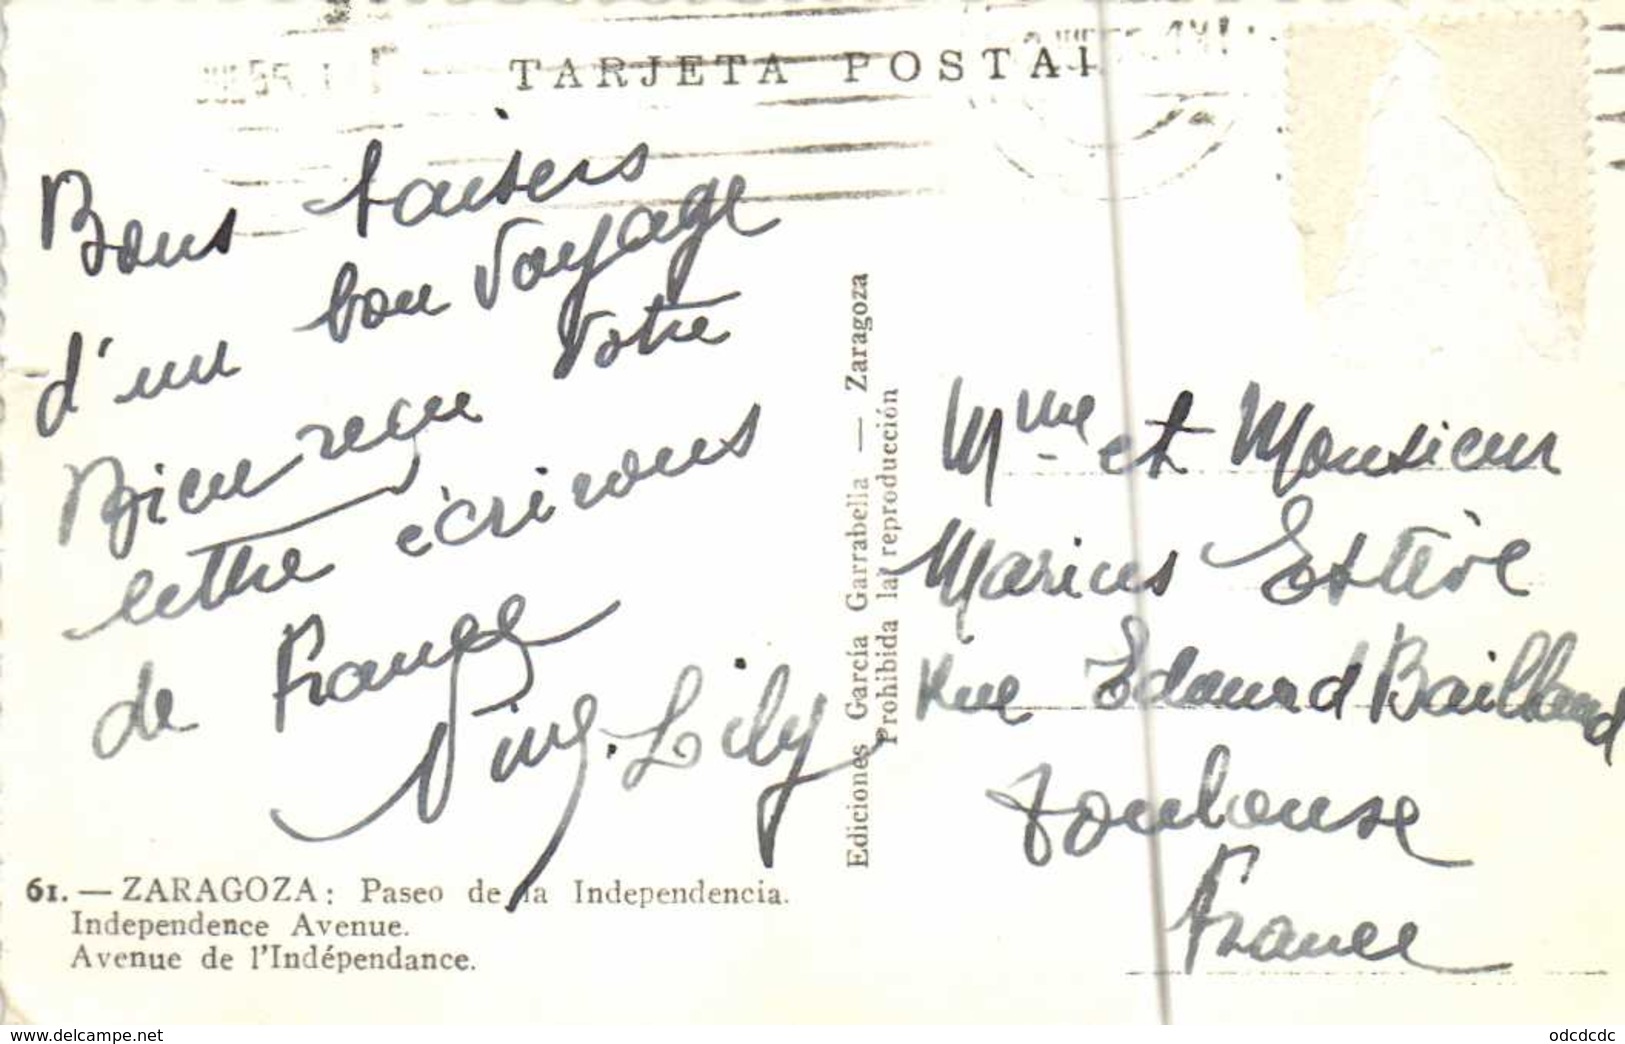 TARJETA POSTAL
Bons baisers
d'un bon voyage
Bien reçu votre
lettre écrirons
de France
Lily
61. — ZARAGOZA: Paseo de la Independencia.
Independence Avenue.
Avenue de l'Indépendance.
Ediciones García Garrabella — Zaragoza
Prohibida la reproducción
Mme et Monsieur
Marius Estève
Rue Edouard Baillaud
Toulouse
France
www.delcampe.net
odcdcdc